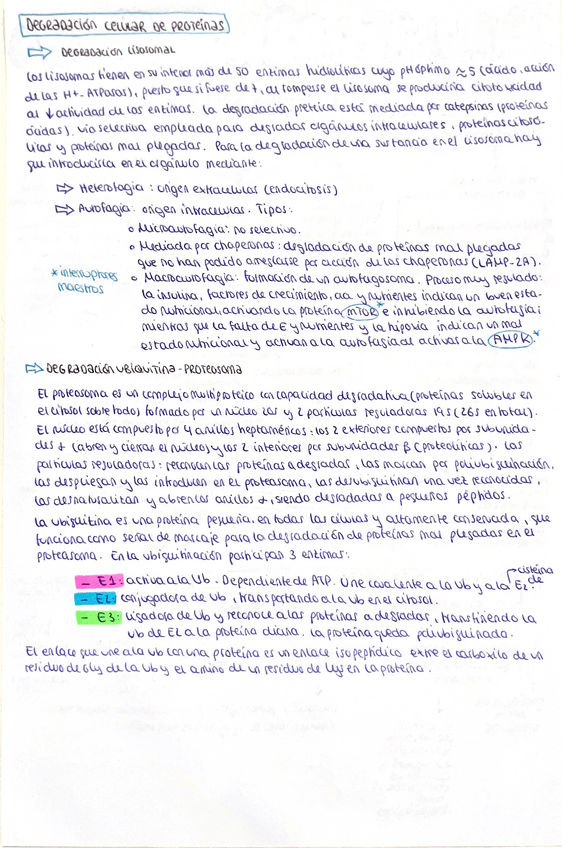 DEGRADACIÓN CELULAR DE PROTEÍNAS
⇨ DEGRADACIÓN LISOSOMAL
Los lisosomas tienen en su interior más de 50 enzimas hidrolíticas cuyo pH óptimo ≈ 5 (ácido, acción
de las H+-ATPasas), puesto que si fuese de 7, al romperse el lisosoma se produciría citotoxicidad
al ↓ actividad de las enzimas. La degradación proteica está mediada por catepsinas (proteínas
ácidas). Vía selectiva empleada para degradar orgánulos intracelulares, proteínas citosó-
licas y proteínas mal plegadas. Para la degradación de una sustancia en el lisosoma hay
que introducirla en el orgánulo mediante:
⇨ Heterofagia: origen extracelular (endocitosis)
⇨ Autofagia: origen intracelular. Tipos:
o Microautofagia: no selectivo.
o Mediada por chaperonas: degradación de proteínas mal plegadas
que no han podido arreglarse por acción de las chaperonas (LAMP-2A).
o Macroautofagia: formación de un autofagosoma. Proceso muy regulado:
la insulina, factores de crecimiento, aa y nutrientes indican un buen esta-
do nutricional, activando la proteína mTOR* e inhibiendo la autofagia;
mientras que la falta de E y nutrientes y la hipoxia indican un mal
estado nutricional y activan a la autofagia al activar a la AMPK.*
*interruptores
maestros
⇨ DEGRADACIÓN UBIQUITINA-PROTEOSOMA
El proteasoma es un complejo multiproteico con capacidad degradativa (proteínas solubles en
el citosol sobre todo) formado por un núcleo 20s y 2 partículas reguladoras 19s (26s en total).
El núcleo está compuesto por 4 anillos heptaméricos: los 2 exteriores compuestos por subunida-
des α (abren y cierran el núcleo) y los 2 interiores por subunidades β (proteolíticas). Las
partículas reguladoras: reconocen las proteínas a degradar, las marcan por poliubiquinación,
las despliegan y las introducen en el proteasoma, las desubiquitinan una vez reconocidas,
las desnaturalizan y abren los anillos α, siendo degradadas a pequeños péptidos.
La ubiquitina es una proteína pequeña, en todas las células y altamente conservada, que
funciona como señal de marcaje para la degradación de proteínas mal plegadas en el
proteasoma. En la ubiquitinación participan 3 enzimas:
- E1: activa a la Ub. Dependiente de ATP. Une covalente a la Ub y a la cisteína de E2.
- E2: conjugadora de Ub, transportando la Ub en el citosol.
- E3: ligadora de Ub y reconoce a las proteínas a degradar, transfiriendo la
Ub de E2 a la proteína diana. La proteína queda poliubiquinada.
El enlace que une a la Ub con una proteína es un enlace isopeptídico entre el carboxilo de un
residuo de Gly de la Ub y el amino de un residuo de Lys en la proteína.